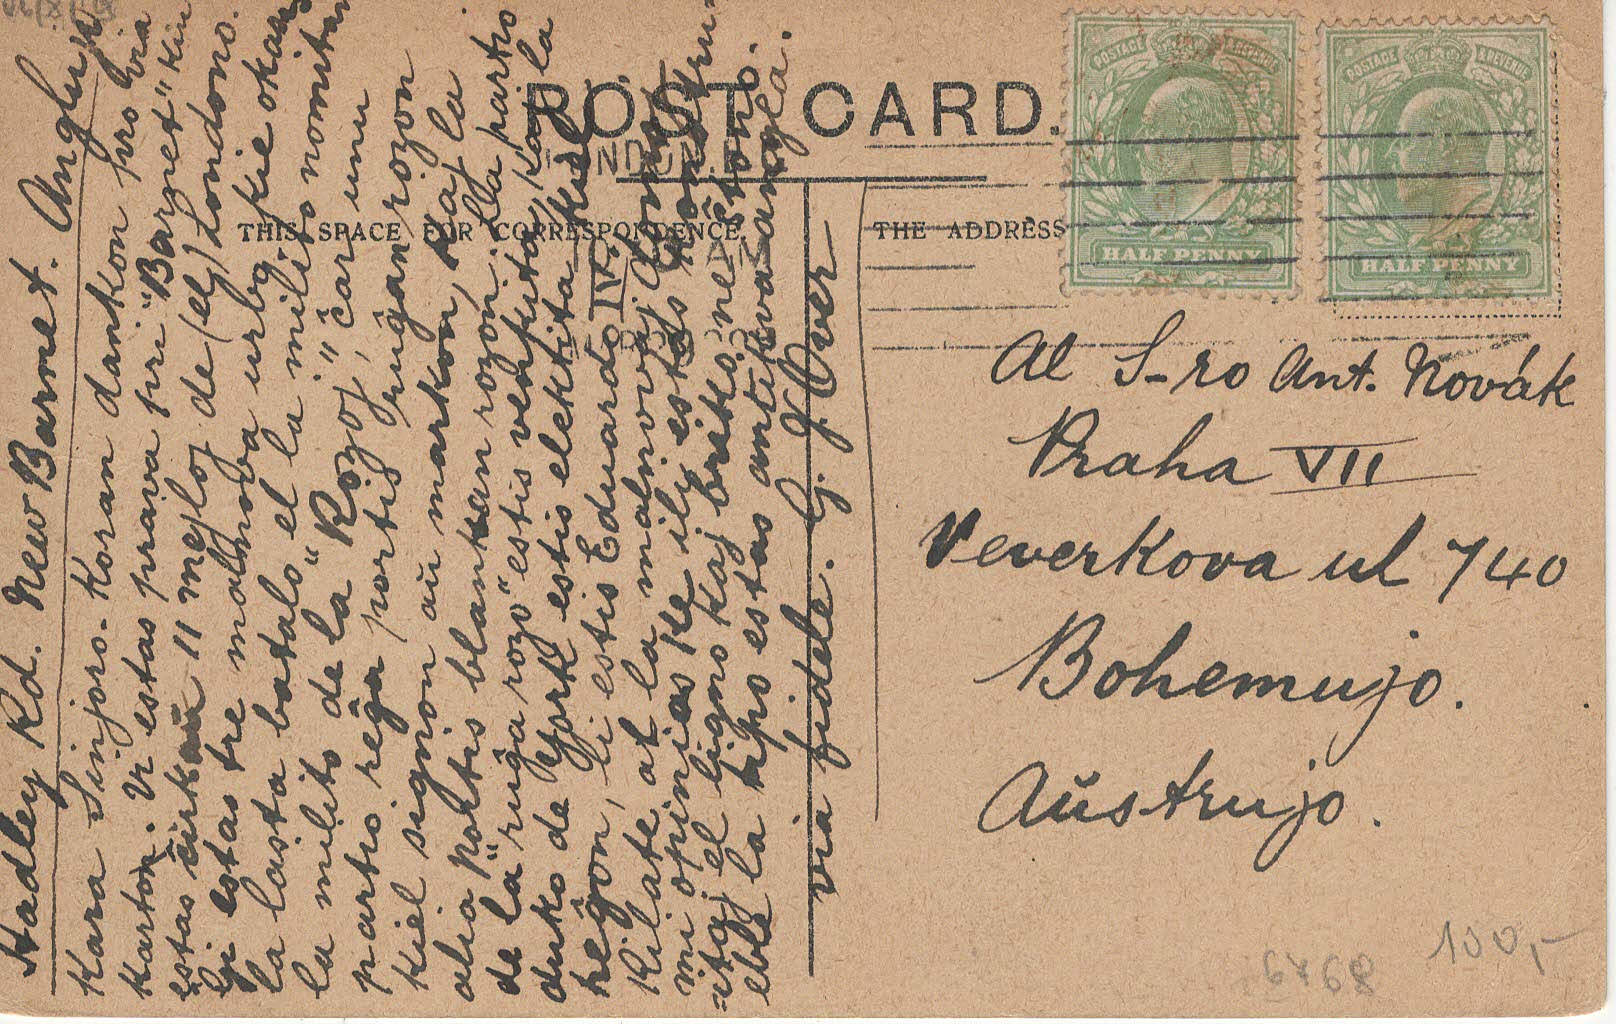 POST CARD.
THIS SPACE FOR CORRESPONDENCE.
THE ADDRESS
POSTAGE REVENUE
HALF PENNY
POSTAGE REVENUE
HALF PENNY
Hadley Rd. New Barnet. Anglujo
Kara Sinjoro. Koran dankon pro via
karton. Vi estas prava pri "Barnet" kiu
estas ĉirkaŭ 11 mejloj de (el) Londono.
Ĝi estas tre malnova urbo kie okazis
la lasta batalo el la milito nomita
la milito de la "Rozoj", ĉar unu
partio reĝa portis ruĝan rozon
kiel signon aŭ markon, kaj la
alia portis blankan rozon. La partio
de la "ruĝa rozo" estis venkita, kaj la
duko de York estis elektita kiel
reĝon, li estis Eduardo IVa.
Rilate al la malnovaj domoj
mi opinias ke ili estas konstru-
itaj el ligno kaj briko, ne ŝtono.
eble la tipo estas antikva angla.
via fidele. G. J. Over
Al S-ro Ant. Novák
Praha VII
Veverkova ul 740
Bohemujo.
Aŭstrujo.
6768
100,-